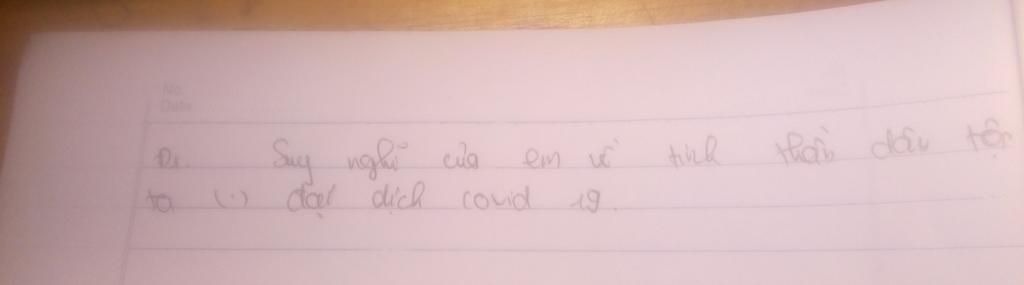 No.
Date
Đ. Suy nghĩ của em về tinh thần dân tộc
ta (.) đại dịch covid 19.